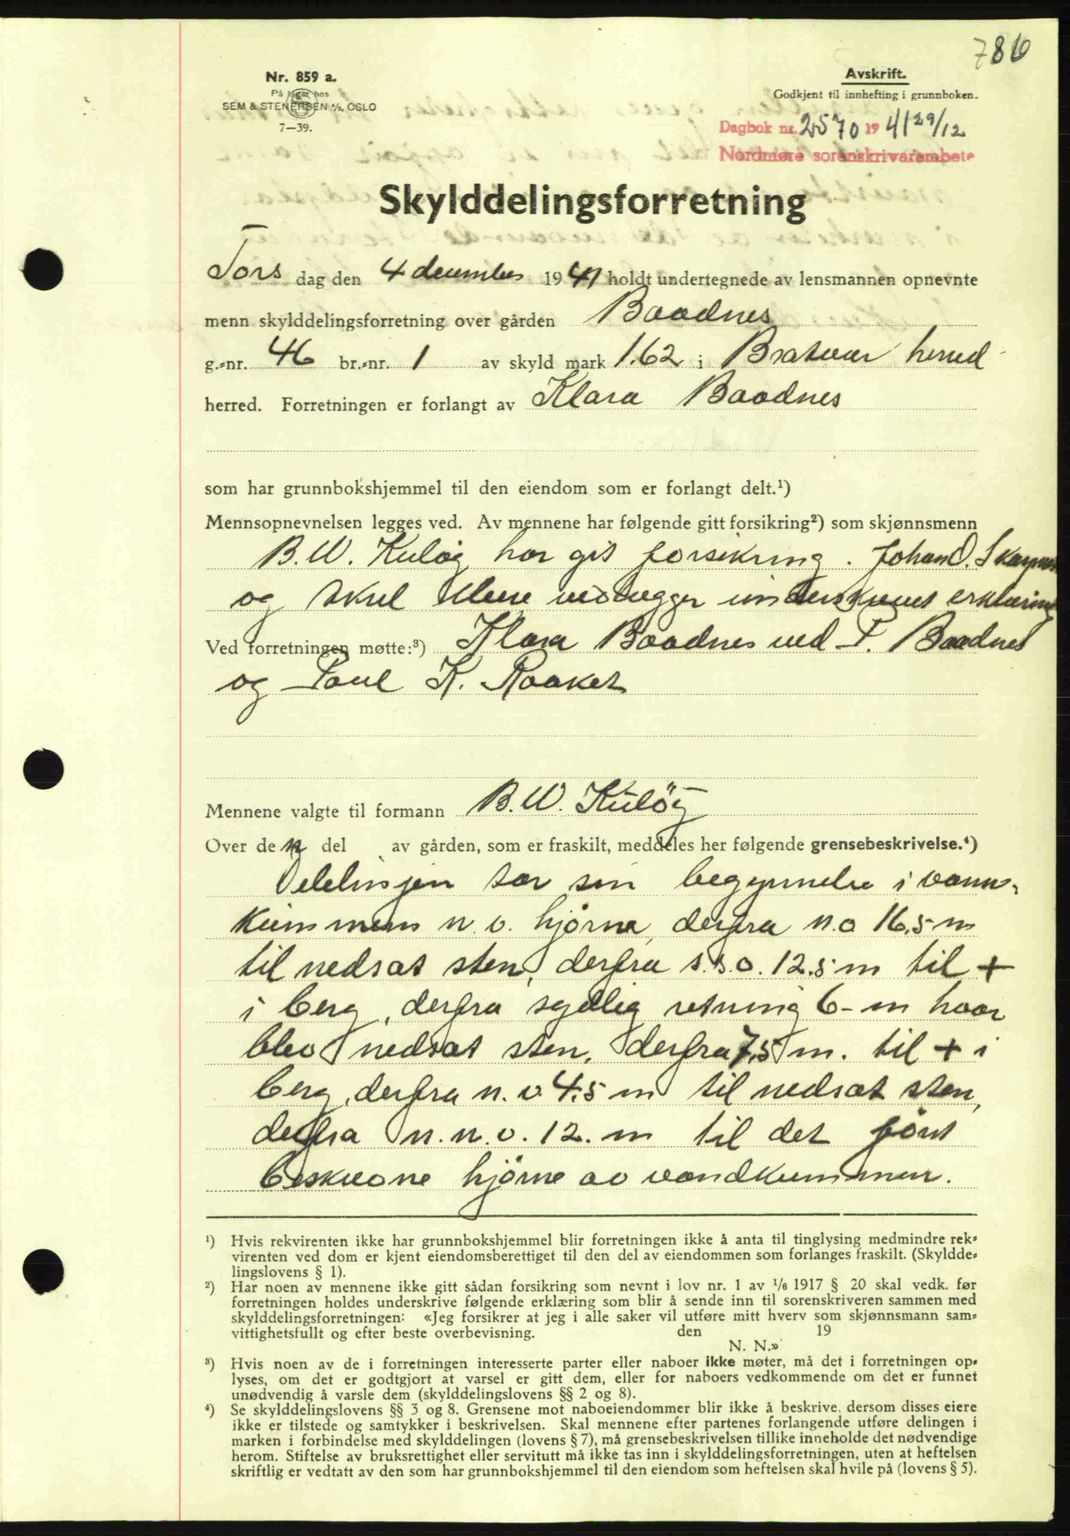 786
Nr. 859 a.
På lager hos
SEM & STENERSEN A/S, OSLO
7—39.
Avskrift.
Godkjent til innhefting i grunnboken.
Dagbok nr. 2570 1941 29/12
Nordmøre sorenskrivarembete
Skylddelingsforretning
Tors dag den 4 december 1941 holdt undertegnede av lensmannen opnevnte
menn skylddelingsforretning over gården Baadnes
g.-nr. 46 br.-nr. 1 av skyld mark 1.62 i Bratvær herred
herred. Forretningen er forlangt av Klara Baadnes
som har grunnbokshjemmel til den eiendom som er forlangt delt.¹)
Mennsopnevnelsen legges ved. Av mennene har følgende gitt forsikring²) som skjønnsmenn
B.W. Kuløy har git forsikring. Johan O.
og vedlegger underskrevet erklæring
Ved forretningen møtte:³) Klara Baadnes ved P. Baadnes
og Paul K. Raaket
Mennene valgte til formann B.W. Kuløy
Over den del av gården, som er fraskilt, meddeles her følgende grensebeskrivelse.⁴)
Delelinjen tar sin begynnelse i vann-
kummens n.v. hjørne, derfra n.o 16,5 m
til nedsat sten, derfra s.s.o. 12.5 m til +
i berg, derfra sydlig retning 6- m hvor
blev nedsat sten, derfra 7,5 m. til + i
berg, derfra n.v. 4.5 m til nedsat sten,
derfra n.n.v. 12. m til det først
beskrevne hjørne av vandkummen.
¹) Hvis rekvirenten ikke har grunnbokshjemmel blir forretningen ikke å anta til tinglysing medmindre rek-
virenten ved dom er kjent eiendomsberettiget til den del av eiendommen som forlanges fraskilt. (Skyldde-
lingslovens § 1).
²) Har noen av mennene ikke gitt sådan forsikring som nevnt i lov nr. 1 av ¹/₆ 1917 § 20 skal vedk. før
forretningen holdes underskrive følgende erklæring som blir å sende inn til sorenskriveren sammen med
skylddelingsforretningen: «Jeg forsikrer at jeg i alle saker vil utføre mitt hverv som skjønnsmann sam-
vittighetsfullt og efter beste overbevisning. den 19
N. N.»
³) Hvis noen av de i forretningen interesserte parter eller naboer ikke møter, må det i forretningen op-
lyses, om det er godtgjort at varsel er gitt dem, eller for naboers vedkommende om det er funnet
unødvendig å varsle dem (skylddelingslovens §§ 2 og 8).
⁴) Se skylddelingslovens §§ 3 og 8. Grensene mot naboeiendommer blir ikke å beskrive, dersom disses eiere
ikke er tilstede og samtykker i beskrivelsen. Skal mennene efter partenes forlangende utføre delingen i
marken i forbindelse med skylddelingen (lovens § 7), må grensebeskrivelsen tillike inneholde det nødvendige
herom. Stiftelse av bruksrettighet eller servitutt må ikke tas inn i skylddelingsforretningen, uten at heftelsen
skriftlig er vedtatt av den som har grunnbokshjemmel til den eiendom som heftelsen skal hvile på (lovens § 5).